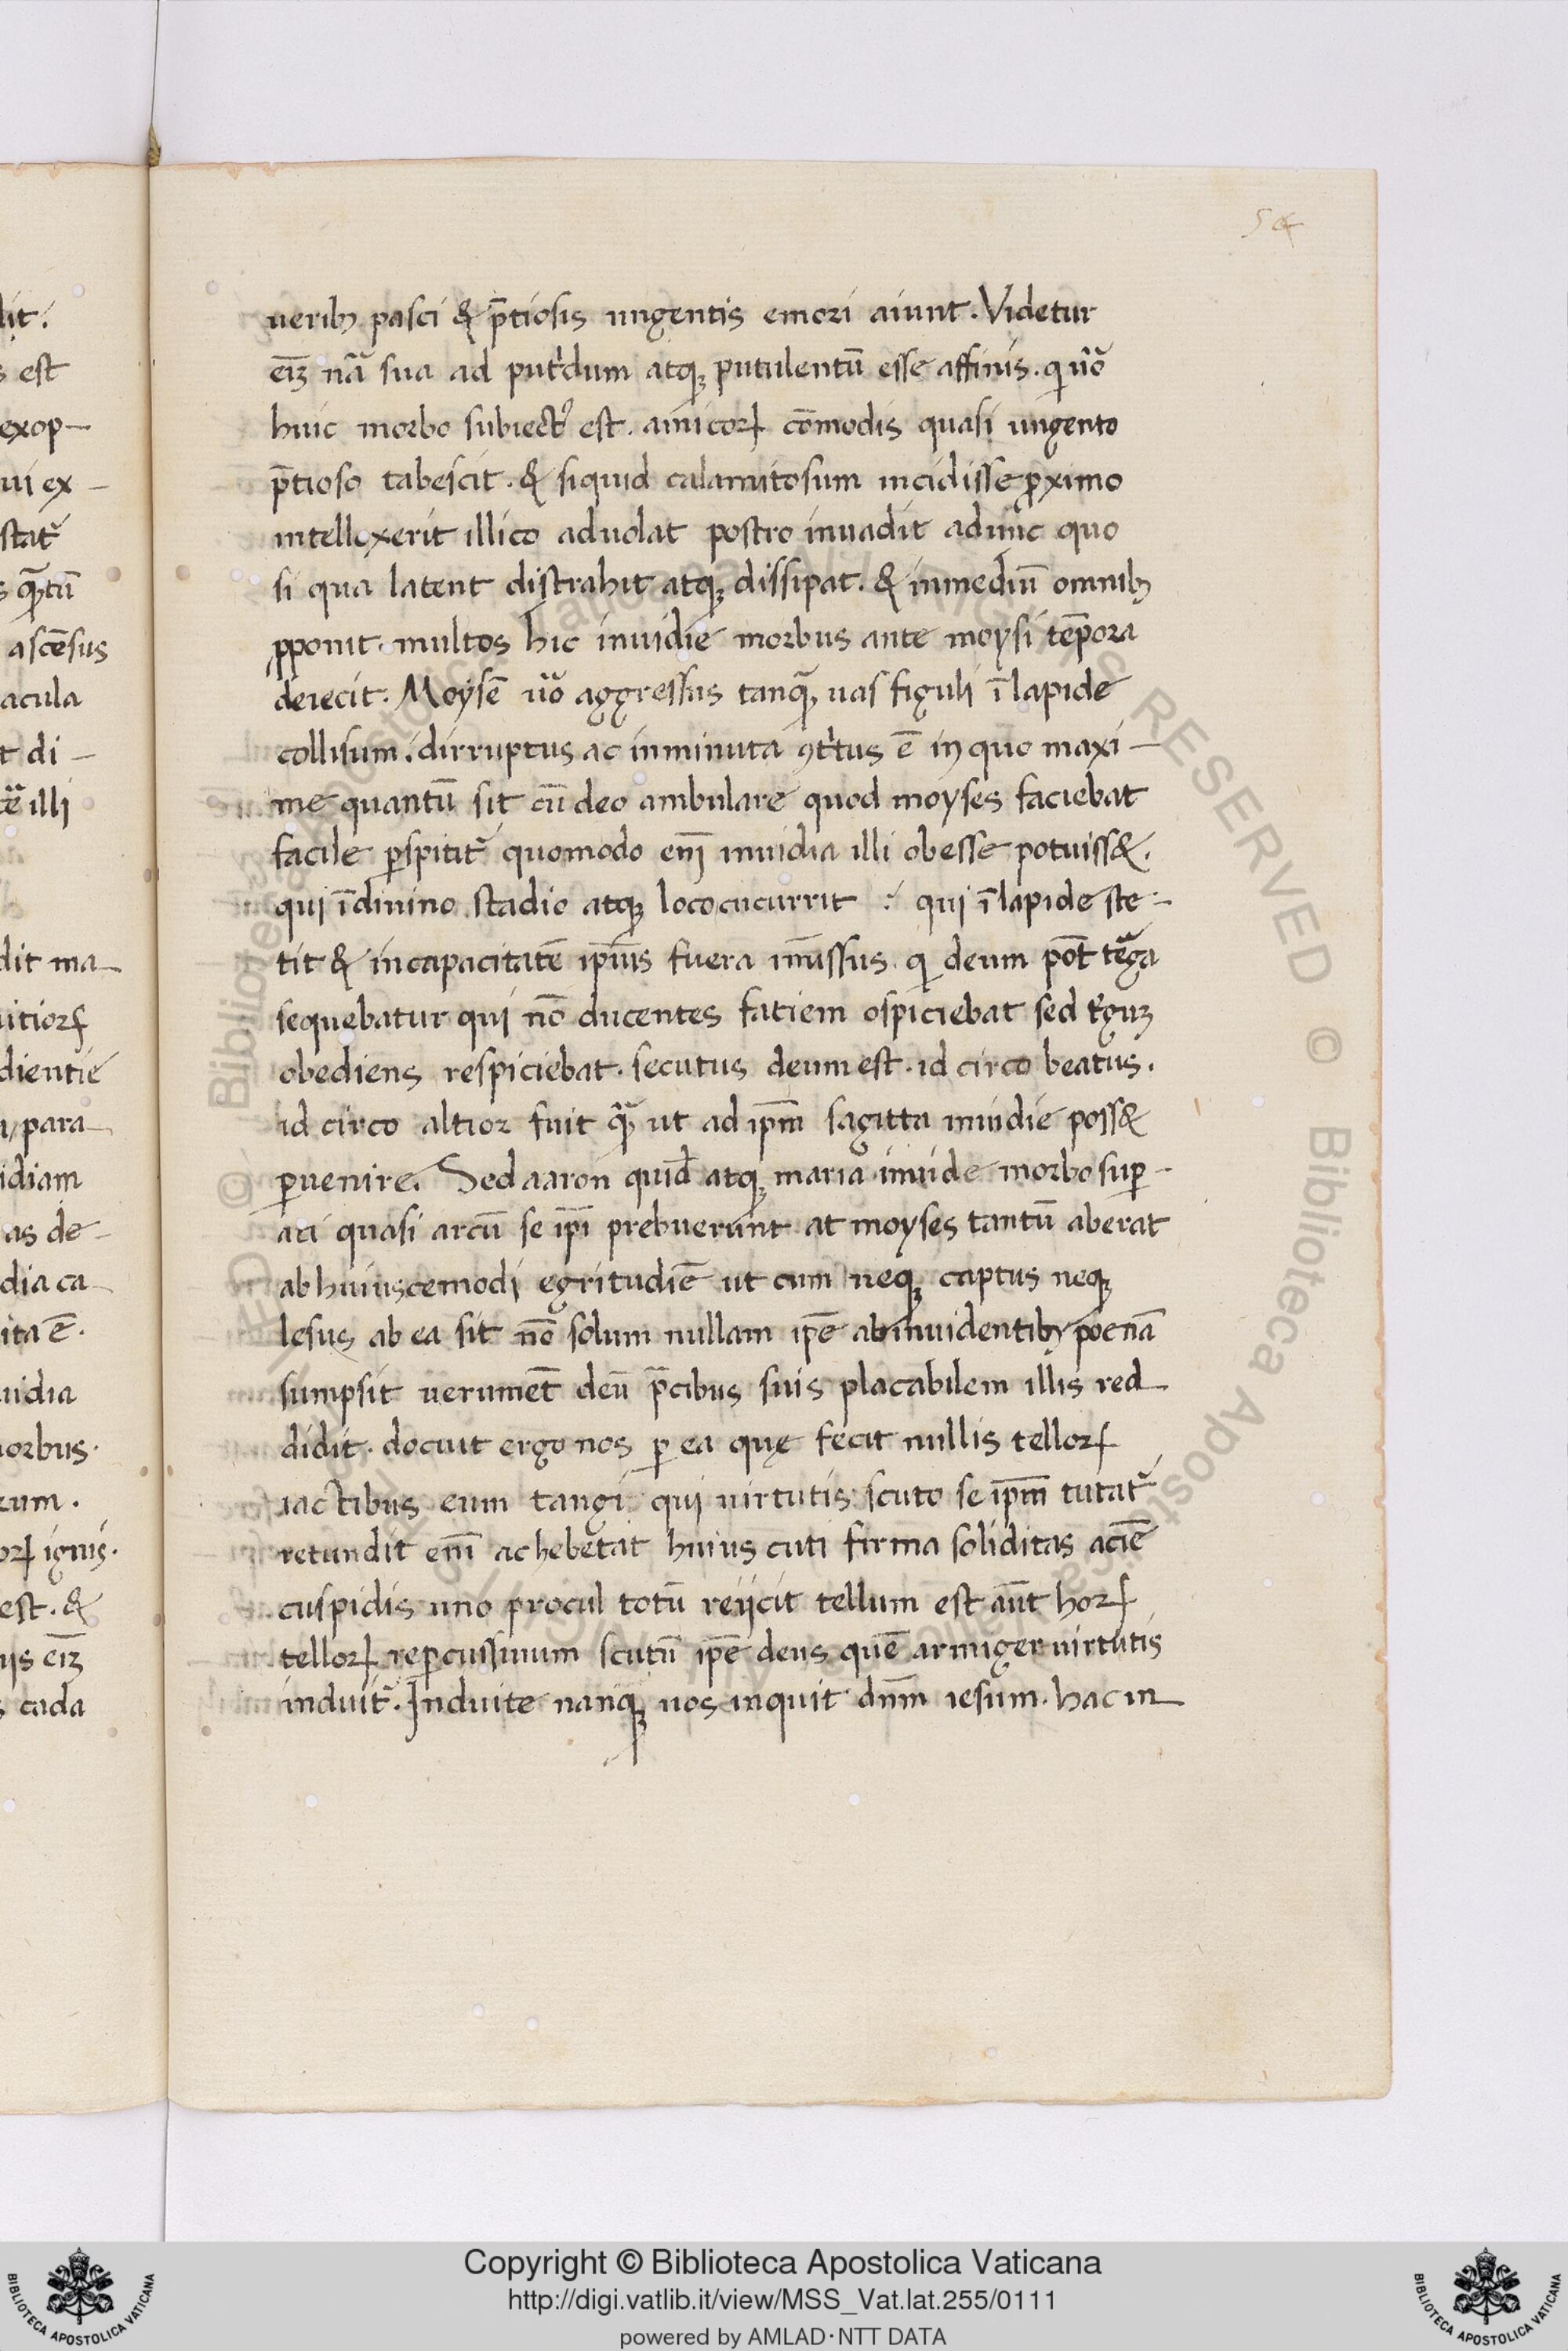 54
lit.
s est
exop-
ui ex-
statr̃
s qᷓtũ
ascẽsus
acula
t di-
illi
dit ma-
uitioꝝ
dientie
para-
idiam
as de-
dia ca-
ita ẽ.
uidia
morbus.
rum.
oꝝ ignis.
est. &
eiꝫ
s cada
ueribꝫ pasci & p̃tiosis ungentis emori aiunt. Videtur
eiꝫ nã sua ad putridum atqꝫ putulentũ esse affinis. qi ũo
huic morbo subiectꝰ est. amicoꝝ cõmodis quasi ungento
p̃tioso tabescit. & siquid calamitosum incidisse ꝓximo
intellexerit illico aduolat postro inuadit adunc quo
si qua latent distrahit atqꝫ dissipat. & inmediũ omnibꝫ
ꝓponit. multos hic inuidie morbus ante moysi tẽpora
deiecit. Moysẽ ũo aggressus tanqᷓ uas figuli ĩ lapide
collisum. dirruptus ac inminuta ꝯtritus ẽ in quo maxi-
me quantũ sit cũ deo ambulare quod moyses faciebat
facile ꝑspititr̃ quomodo eni᷈ inuidia illi obesse potuiss&.
qui ĩ diuino stadio atqꝫ loco cucurrit : qui ĩ lapide ste-
tit & incapacitatẽ ip̃ius fuera imissus. qi deum põt terga
sequebatur qui nõ ducentes fatiem ospiciebat sed terguꝫ
obediens respiciebat. secutus deum est. id circo beatus.
id circo altior fuit qᷓ ut ad ip̃m sagitta inuidie poss&
ꝑuenire. Sed aaron quid̃ atqꝫ maria inuide morbo suꝑ-
ati quasi arcũ se ip̃i prebuerunt at moyses tantũ aberat
ab huiuscemodi egritudiẽ ut cum neqꝫ captus neqꝫ
lesus ab ea sit nõ solum nullam ip̃e ab inuidentibꝫ poenã
sumpsit uerumẽt deũ p̃cibus suis placabilem illis red-
didit. docuit ergo nos ꝑ ea quę fecit nullis telloꝝ
iactibus eum tangi qui uirtutis scuto se ip̃m tutatr̃
retundit eni᷈ ac hebetat huius cuti firma soliditas aciẽ
cuspidis uno procul totũ reijcit tellum est aũt hoꝝ
telloꝝ reꝑcussiuum scutũ ip̃e deus quẽ armiger uirtutis
induitr̃. Induite nanqꝫ uos inquit dñm iesum. hac in-
Copyright © Biblioteca Apostolica Vaticana
http://digi.vatlib.it/view/MSS_Vat.lat.255/0111
powered by AMLAD·NTT DATA
BIBLIOTECA APOSTOLICA VATICANA
BIBLIOTECA APOSTOLICA VATICANA